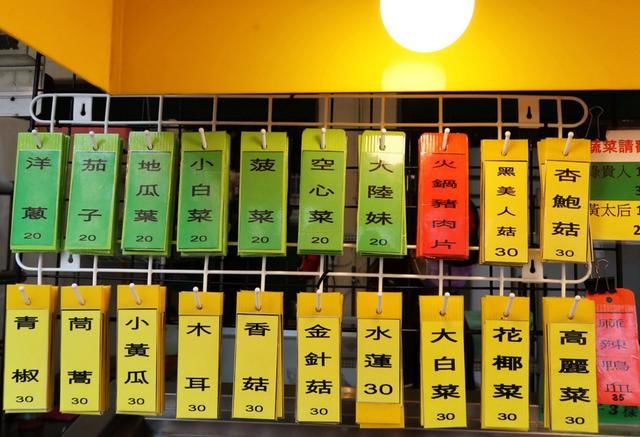 洋蔥 20
茄子 20
地瓜葉 20
小白菜 20
菠菜 20
空心菜 20
大陸妹 20
火鍋豬肉片
黑美人菇 30
杏鮑菇 30
蔬菜請
貴人
黃太后
青椒 30
茼蒿 30
小黃瓜 30
木耳 30
香菇 30
金針菇 30
水蓮 30
大白菜 30
花椰菜 30
高麗菜 30
鴨血 35